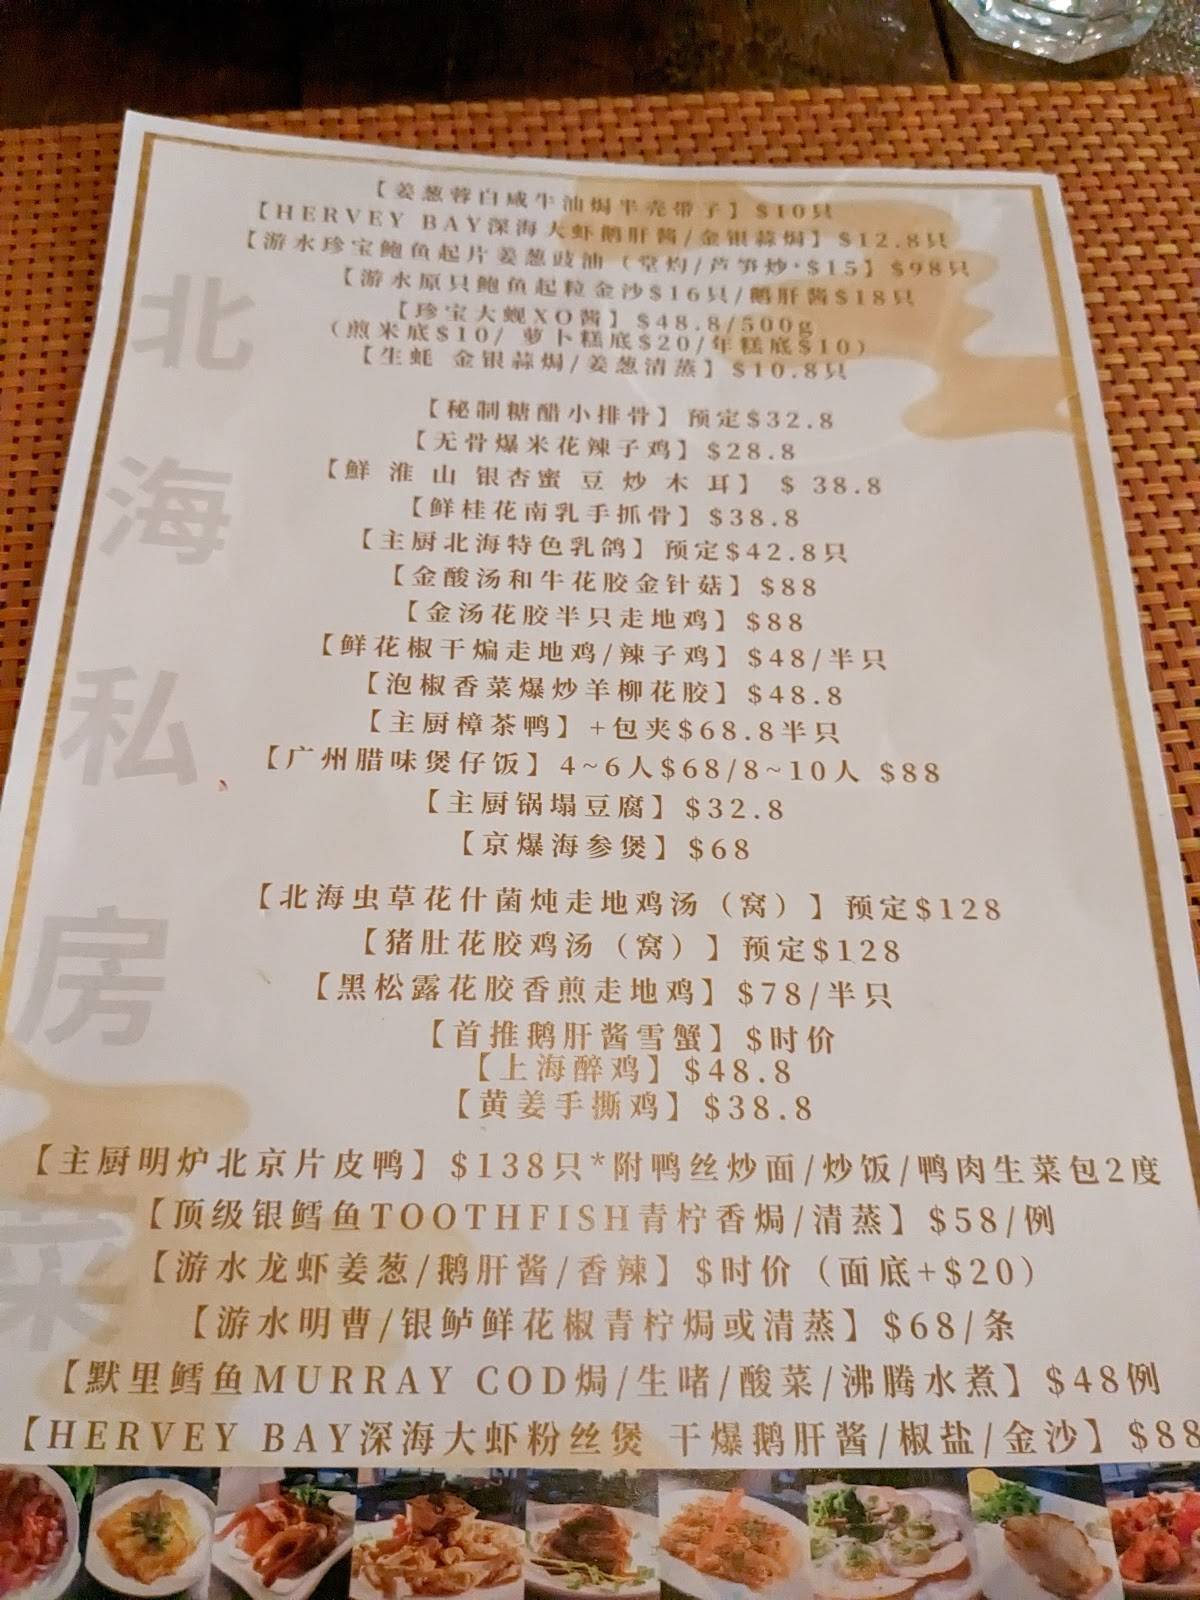 【姜葱蓉白咸牛油焗半壳带子】$10只
【HERVEY BAY深海大虾鹅肝酱/金银蒜焗】$12.8只
【游水珍宝鲍鱼起片姜葱豉油（堂灼/芦笋炒·$15】$98只
【游水原只鲍鱼起粒金沙$16只/鹅肝酱$18只
【珍宝大蚬XO酱】$48.8/500g
（煎米底$10/ 萝卜糕底$20/年糕底$10）
【生蚝 金银蒜焗/姜葱清蒸】$10.8只
【秘制糖醋小排骨】预定$32.8
【无骨爆米花辣子鸡】$28.8
【鲜 淮 山 银杏蜜 豆 炒 木 耳】 $ 38.8
【鲜桂花南乳手抓骨】$38.8
【主厨北海特色乳鸽】预定$42.8只
【金酸汤和牛花胶金针菇】$88
【金汤花胶半只走地鸡】$88
【鲜花椒干煸走地鸡/辣子鸡】$48/半只
【泡椒香菜爆炒羊柳花胶】$48.8
【主厨樟茶鸭】+包夹$68.8半只
【广州腊味煲仔饭】4~6人$68/8~10人 $88
【主厨锅塌豆腐】$32.8
【京爆海参煲】$68
【北海虫草花什菌炖走地鸡汤（窝）】预定$128
【猪肚花胶鸡汤（窝）】预定$128
【黑松露花胶香煎走地鸡】$78/半只
【首推鹅肝酱雪蟹】$时价
【上海醉鸡】$48.8
【黄姜手撕鸡】$38.8
【主厨明炉北京片皮鸭】$138只*附鸭丝炒面/炒饭/鸭肉生菜包2度
【顶级银鳕鱼TOOTHFISH青柠香焗/清蒸】$58/例
【游水龙虾姜葱/鹅肝酱/香辣】$时价（面底+$20）
【游水明曹/银鲈鲜花椒青柠焗或清蒸】$68/条
【默里鳕鱼MURRAY COD焗/生啫/酸菜/沸腾水煮】$48例
【HERVEY BAY深海大虾粉丝煲 干爆鹅肝酱/椒盐/金沙】$88
北
海
私
房
菜